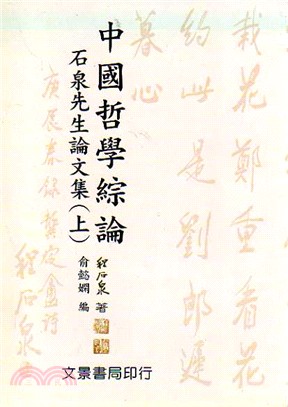 中國哲學綜論
石泉先生論文集(上)
程石泉 著
俞懿嫻 編
文景書局印行
栽花鄭重看花
約此是劉郎遲
暮心
庚辰春錄龔定盦詩
程石泉